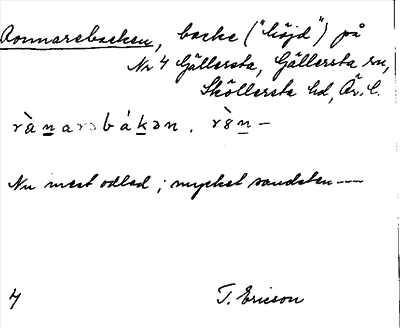 Ronnarebacken, backe ("höjd") på
Nr 4 Gällersta, Gällersta sn,
Sköllersta hd, Är. l.
rànarəbákən. rȣ̀n —
Nu mest odlad; mycket sandsten —
4 T. Ericson